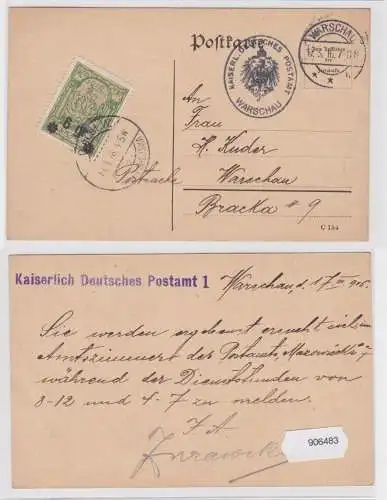 Postkarte
KAISERL. DEUTSCHES POSTAMT
WARSCHAU
WARSCHAU
An
Frau
H. Kuder
Postsache
Warschau
Bracka # 9
C 154
Kaiserlich Deutsches Postamt 1
Warschau, d. 17
Sie werden ergebenst ersucht, sich im
Amtszimmer des Postamts, Mazowiecka 7
während der Dienststunden von
8-12 und 4-7 zu melden.
I A
906483